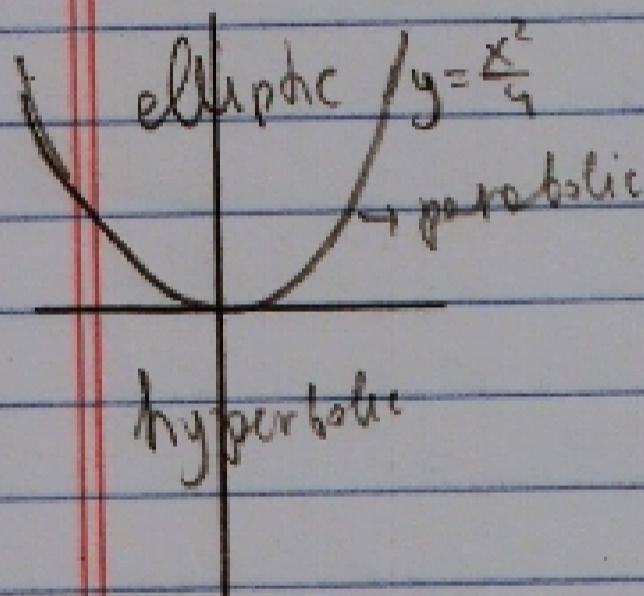 elliptic y = x²/4
→ parabolic
hyperbolic